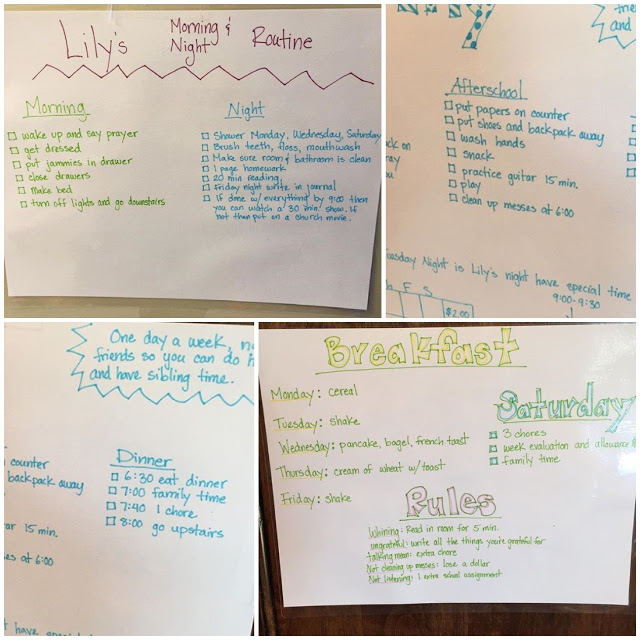 Lily's Morning & Night Routine
Morning
☐ wake up and say prayer
☐ get dressed
☐ put jammies in drawer
☐ close drawers
☐ make bed
☐ turn off lights and go downstairs
Night
☐ Shower Monday, Wednesday, Saturday
☐ Brush teeth, floss, mouthwash
☐ Make sure room & bathroom is clean
☐ 1 page homework
☐ 20 min reading
☐ Friday night write in journal
☐ If done w/ everything by 9:00 then
you can watch a 30 min. show. If
not then put on a church movie.
and
Afterschool
☐ put papers on counter
☐ put shoes and backpack away
☐ wash hands
☐ snack
☐ practice guitar 15 min.
☐ play
☐ clean up messes at 6:00
Night is Lily's night have special time
9:00-9:30
F S
$2.00
One day a week, no
friends so you can do
and have sibling time.
counter
backpack away
15 min.
at 6:00
Dinner
☐ 6:30 eat dinner
☐ 7:00 family time
☐ 7:40 1 chore
☐ 8:00 go upstairs
have
Breakfast
Monday: cereal
Tuesday: shake
Wednesday: pancake, bagel, french toast
Thursday: cream of wheat w/toast
Friday: shake
Saturday
☐ 3 chores
☐ week evaluation and allowance
☐ family time
Rules
Whining: Read in room for 5 min.
ungrateful: write all the things you're grateful for
talking mean: extra chore
Not cleaning up messes: lose a dollar
Not listening: 1 extra school assignment